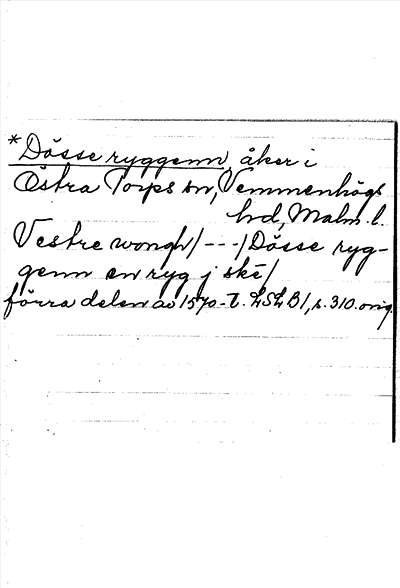 *Dösse ryggenn, åker i
Östra Torps sn, Vemmenhögs
hd, Malm. l.
Vestre wongh/---/Dösse ryg-
genn en ryg j ské/
förra delen av 1570-t. LSLB1, s. 310. orig.